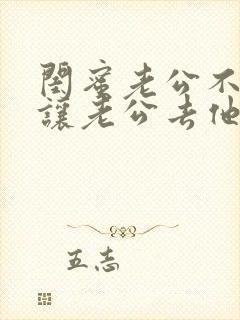 閨蜜老公不
讓老公去他
五志